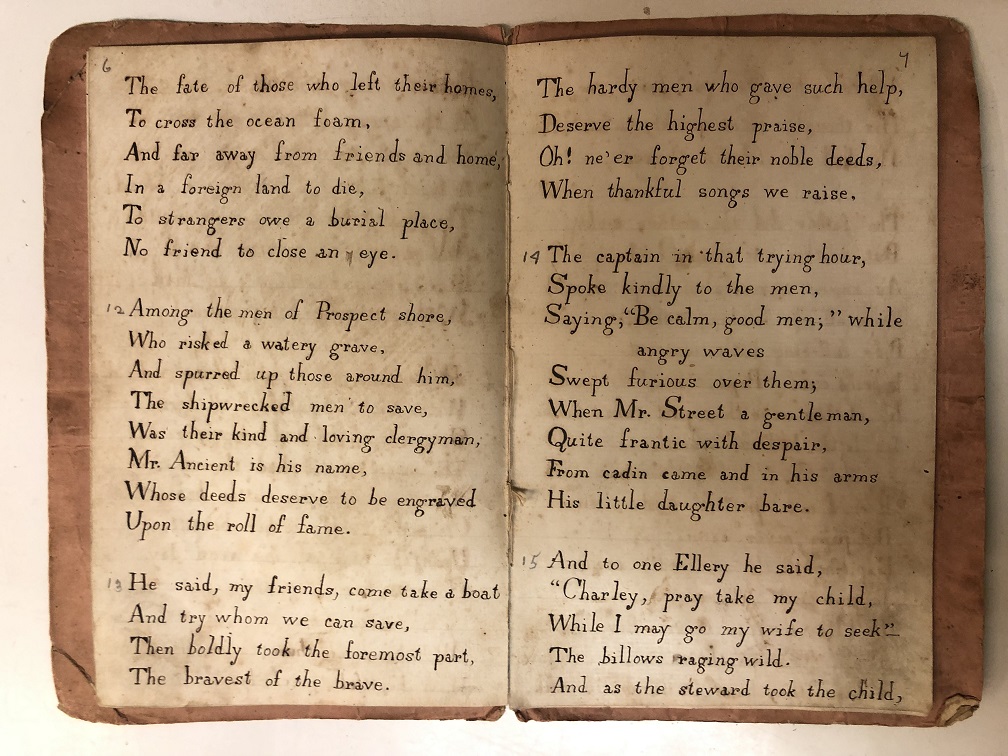 6
The fate of those who left their homes,
To cross the ocean foam,
And far away from friends and home,
In a foreign land to die,
To strangers owe a burial place,
No friend to close an eye.
12 Among the men of Prospect shore,
Who risked a watery grave,
And spurred up those around him,
The shipwrecked men to save,
Was their kind and loving clergyman,
Mr. Ancient is his name,
Whose deeds deserve to be engraved
Upon the roll of fame.
13 He said, my friends, come take a boat
And try whom we can save,
Then boldly took the foremost part,
The bravest of the brave.
7
The hardy men who gave such help,
Deserve the highest praise,
Oh! ne'er forget their noble deeds,
When thankful songs we raise.
14 The captain in that trying hour,
Spoke kindly to the men,
Saying, "Be calm, good men;" while
angry waves
Swept furious over them;
When Mr. Street a gentleman,
Quite frantic with despair,
From cadin came and in his arms
His little daughter bare.
15 And to one Ellery he said,
"Charley, pray take my child,
While I may go my wife to seek"—
The billows raging wild.
And as the steward took the child,